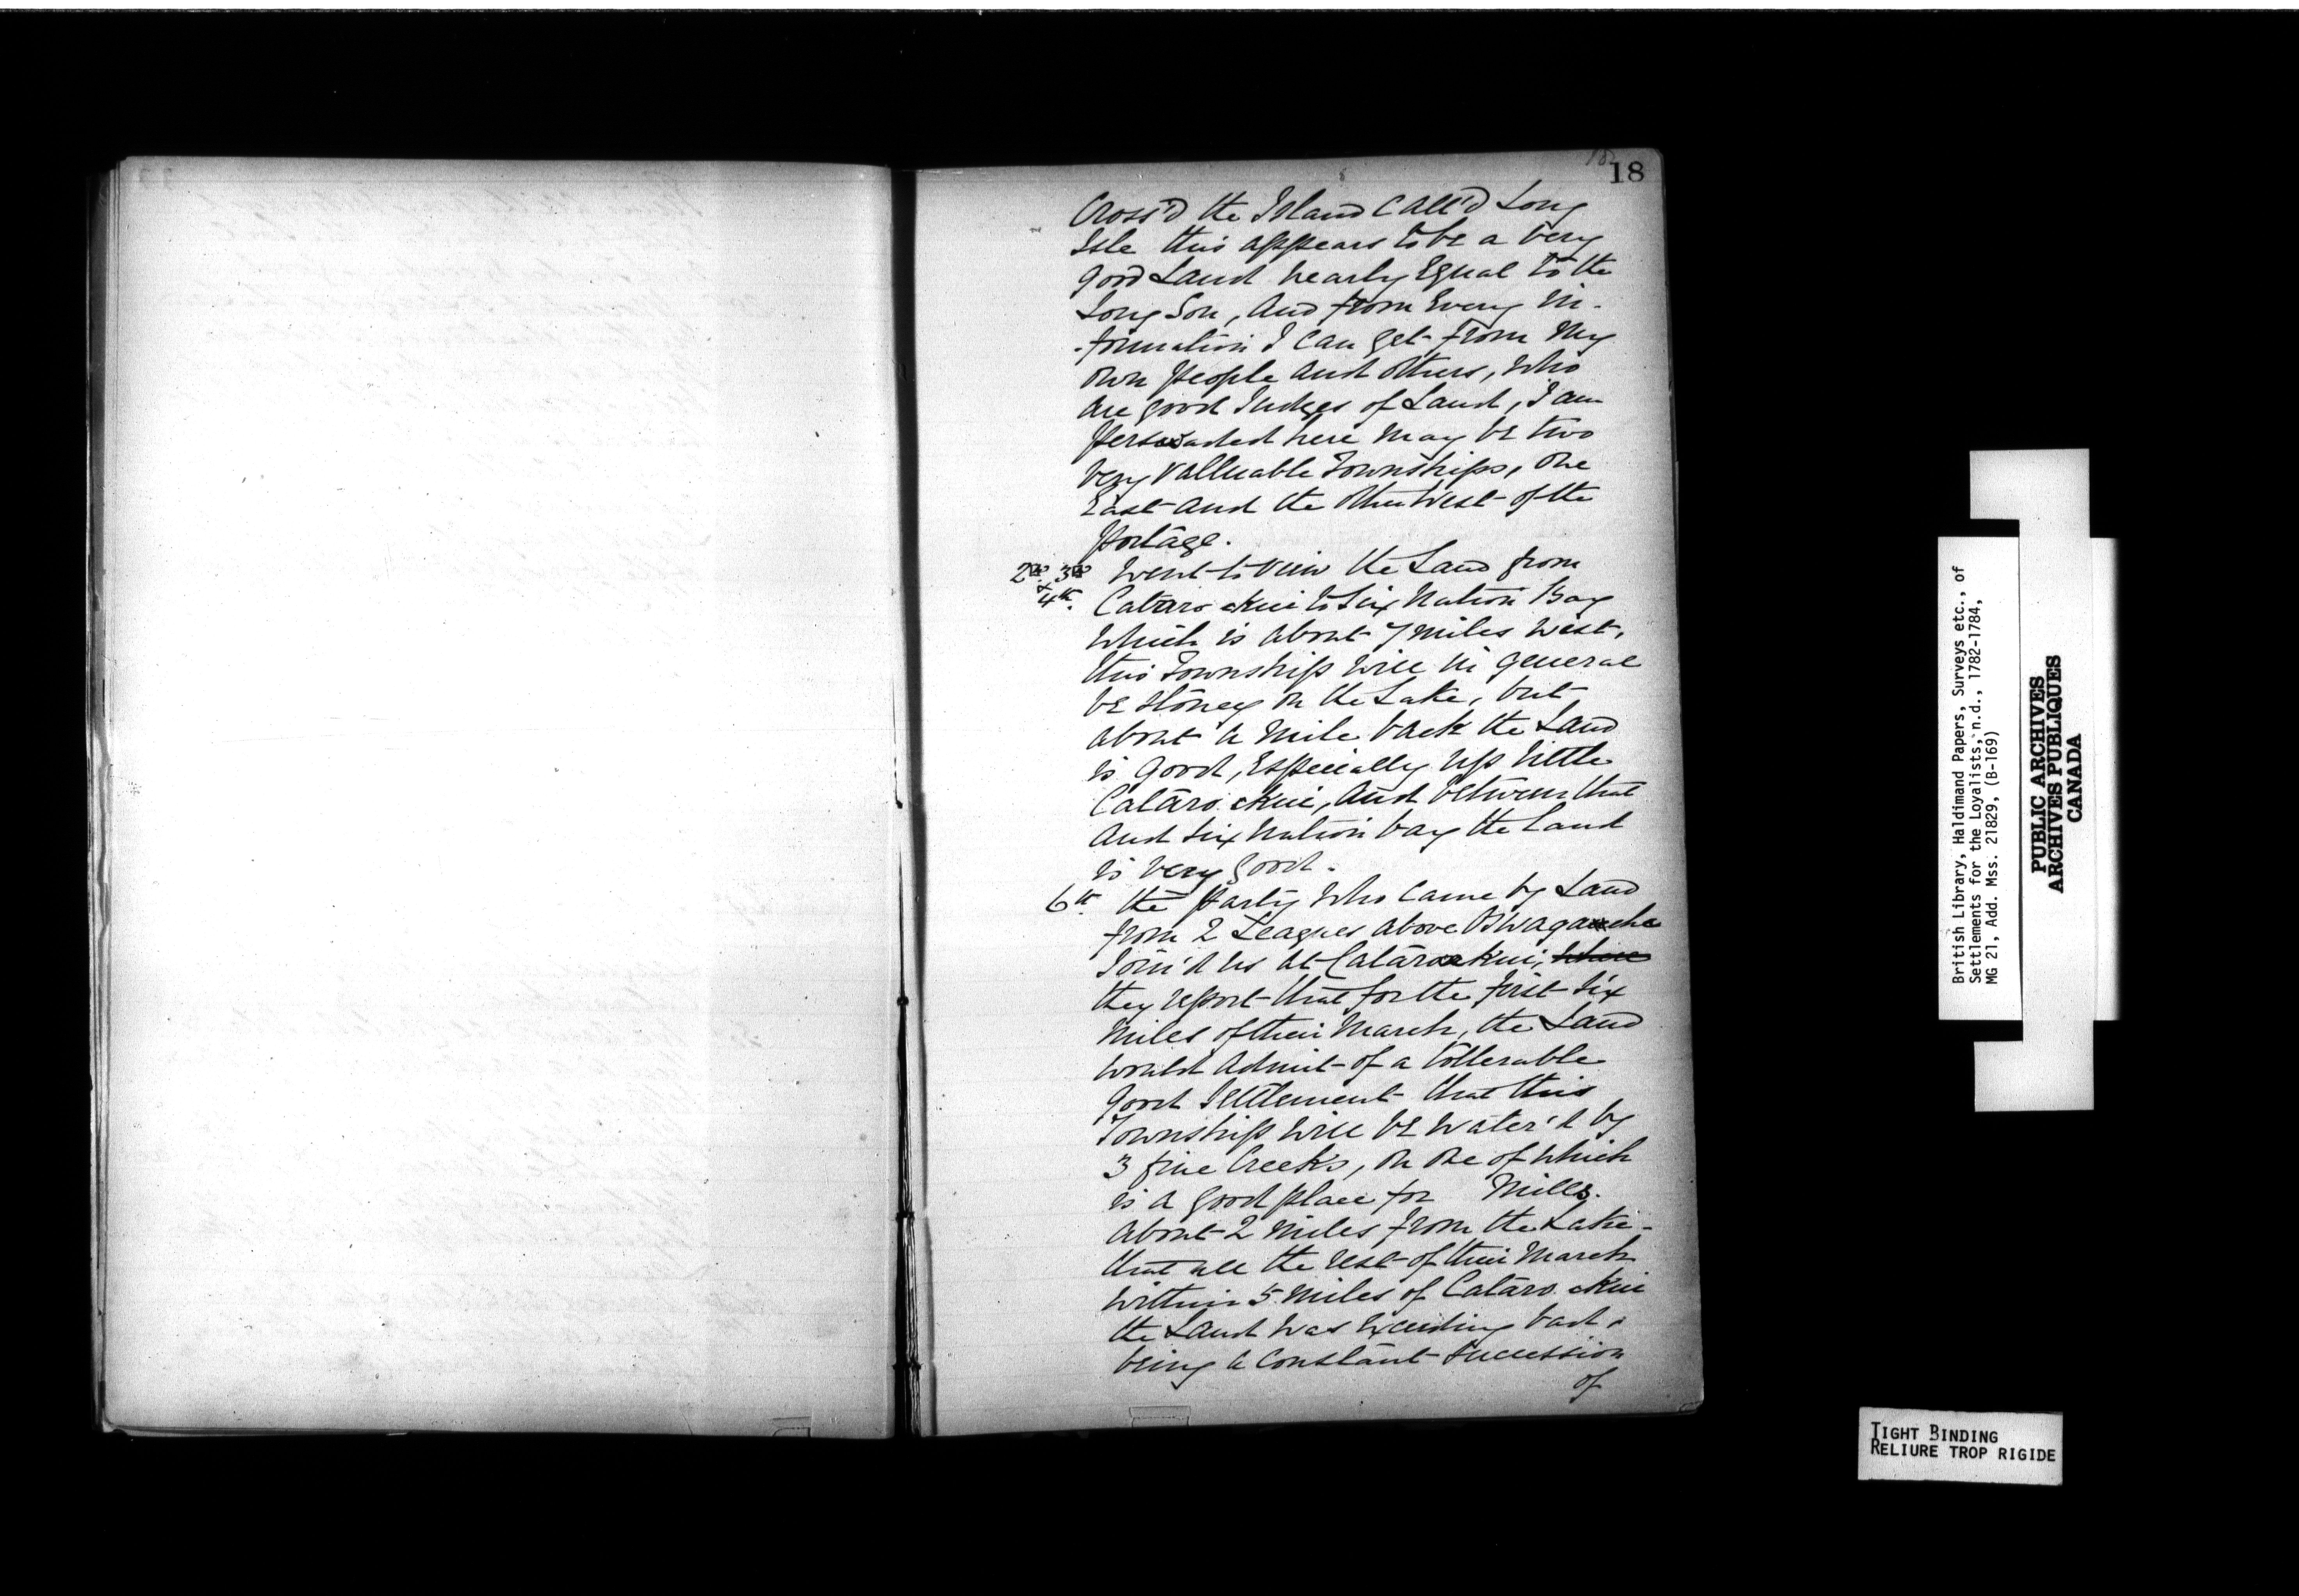 18
Cross'd the Island Call'd Long
Isle this appears to be a very
good Land nearly Equal to the
Long Sou, And from Every in-
-formation I can get from My
own People And others, Who
are good Judges of Land, I am
Perswaded here May be two
very valluable Townships, one
East and the other West of the
Portage.
2d. 3d
& 4th.
Went to view the Land from
Cataro ckui to Six Nation Bay
which is about 7 miles West,
this Township will in general
be Stoney on the Lake, but
about a Mile back the Land
is good, Especially up little
Cataro ckui, And between that
And Six Nation bay the Land
is very good.
6th. the Party Who Came by Land
from 2 Leagues above
Join'd us at Cataro ckui, where
they report that for the first Six
Miles of their March, the Land
would Admit of a tollerable
good Settlement that this
Township will be Water'd by
3 fine Creeks, on one of which
is a good place for Mills.
About 2 Miles from the Lake -
that all the rest of their March
within 5 Miles of Cataro ckui
the Land was Exceeding bad,
being a Constant Succession
of
British Library, Haldimand Papers, Surveys etc., of
Settlements for the Loyalists, n.d., 1782-1784,
MG 21, Add. Mss. 21829, (B-169)
PUBLIC ARCHIVES
ARCHIVES PUBLIQUES
CANADA
TIGHT BINDING
RELIURE TROP RIGIDE